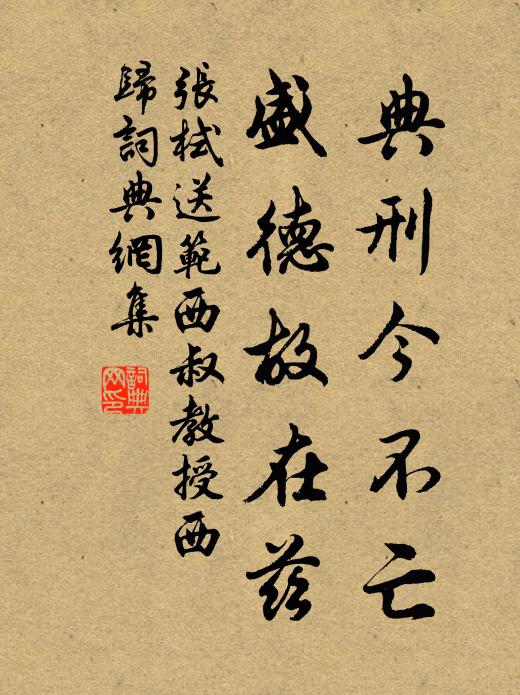 典刑今不亡
盛德故在茲
張栻送範西叔教授西
歸詞典網集
詞典
网印